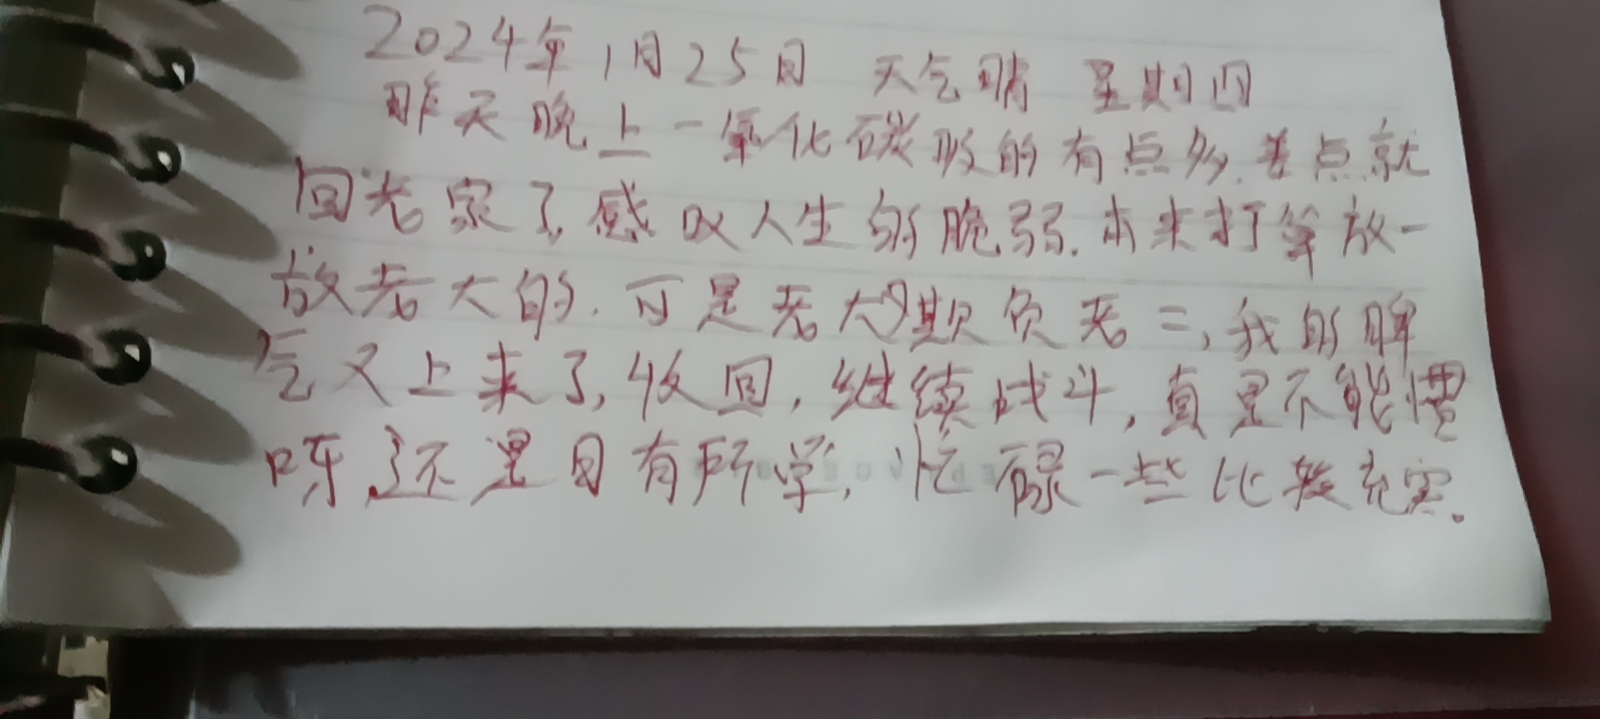 2024年1月25日 天气晴 星期四
昨天晚上一氧化碳吸的有点多.差点就
回老家了,感叹人生的脆弱.本来打算放一
放老大的.可是老大欺负老二,我的脾
气又上来了,收回,继续战斗,真是不能惯
呀,还是日有所学,忙碌一些比较充实。